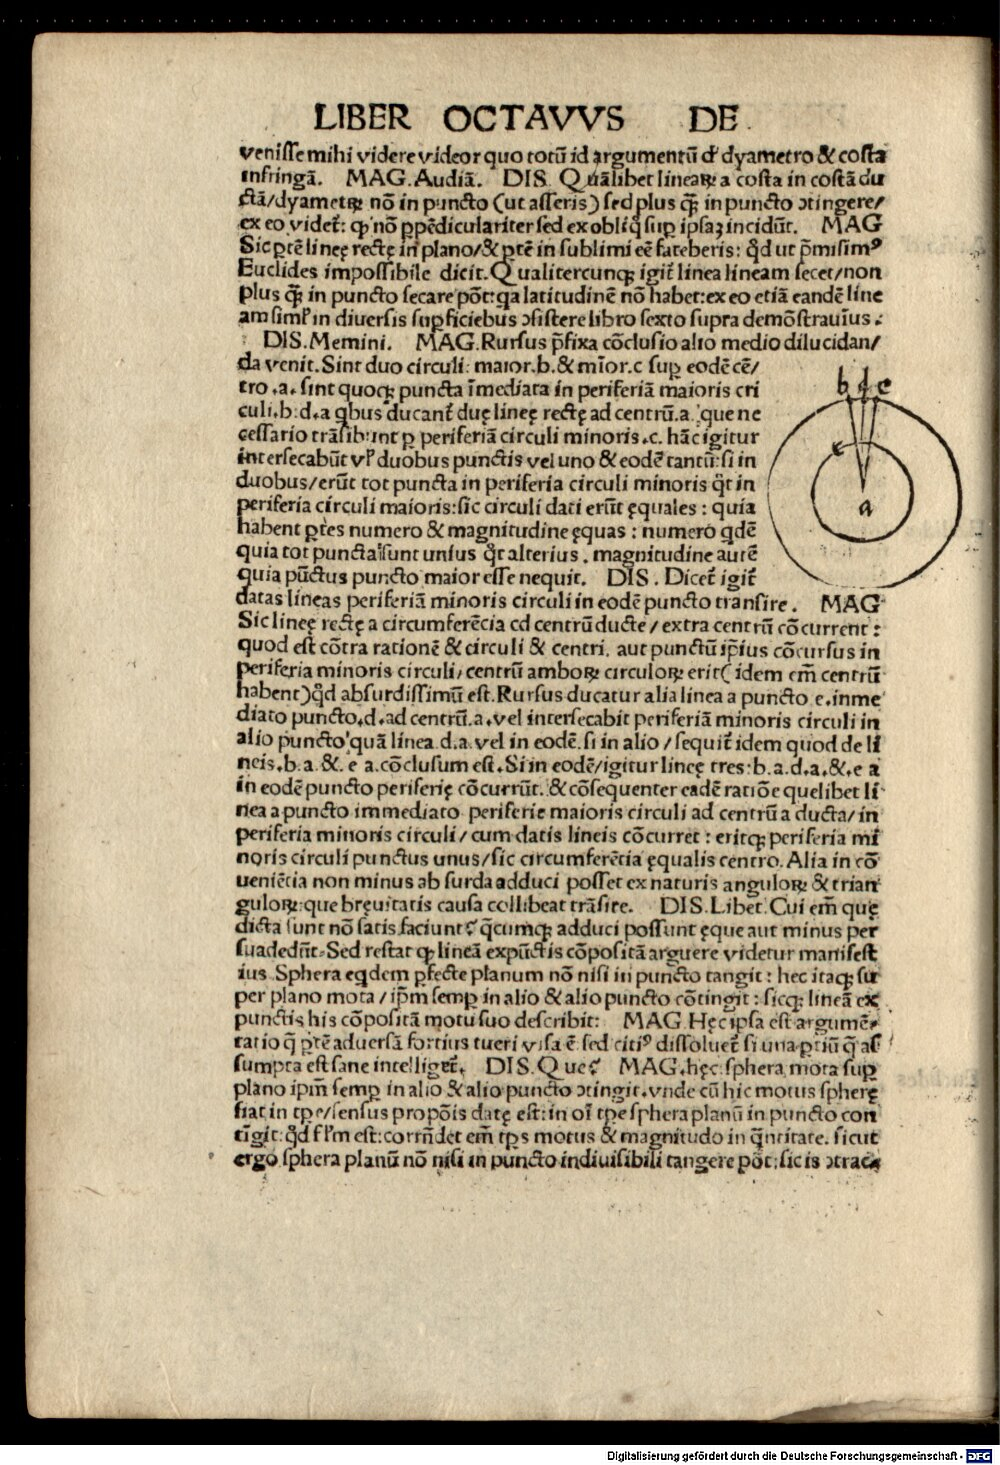 LIBER OCTAVVS DE
venisse mihi videre videor quo totū id argumentū đ dyametro & costa
infringā. MAG. Audiā. DIS. Quālibet linearꝝ a costa in costā du
ctā/dyametꝝ nō in puncto (ut asseris) sed plus q̄ꝫ in puncto ↄtingere/
ex eo videt᷑: qꝫ nō ꝑpēdiculariter sed ex obliq̄ suꝑ ipsaꝫ incidūt. MAG
Sic ꝑtē lineę rectę in plano/& ꝑtē in sublimi eē fateberis: q̄d ut p̄misimꝰ
Euclides impossibile dicit. Qualitercunqꝫ igit᷑ linea lineam secet/non
plus q̄ꝫ in puncto secare pōt: qa latitudinē nō habet: ex eo etiā eandē line
am siml̓ in diversis suꝑficiebus ↄsistere libro sexto supra demōstravīus.
DIS. Memini. MAG. Rursus p̄fixa cōclusio alio medio dilucidan/
da venit. Sint duo circuli: maior .b. & mīor .c suꝑ eodē cē/
tro .a. sint quoqꝫ puncta īmediata in periferiā maioris cri
culi .b. d. a qbus ducant᷑ duę lineę rectę ad centrū .a. que ne
cessario trāsibunt ꝑ periferiā circuli minoris .c. hāc igitur
intersecabūt vl̓ duobus punctis vel uno & eodē tantū: si in
duobus/erūt tot puncta in periferia circuli minoris q̄t in
periferia circuli maioris: sic circuli dati erūt ęquales: quia
habent ꝑtes numero & magnitudine ęquas: numero qdē
quia tot puncta sunt unius q̄t alterius. magnitudine autē
quia pūctus puncto maior esse nequit. DIS. Dicet᷑ igit᷑
datas lineas periferiā minoris circuli in eodē puncto transire. MAG
Sic lineę rectę a circumferēcia cd centrū ducte/extra centrū cōcurrent:
quod est cōtra rationē & circuli & centri. aut punctū ip̄ius cōcursus in
periferia minoris circuli/centrū amboꝝ circuloꝝ erit (idem em̄ centrū
habent) q̄d absurdissimū est. Rursus ducatur alia linea a puncto e. inme
diato puncto .d. ad centrū .a. vel intersecabit periferiā minoris circuli in
alio puncto quā linea d.a. vel in eodē. si in alio/sequit᷑ idem quod de li
neis .b. a. &. e a. cōclusum est. Si in eodē/igitur lineę tres: b.a. d.a. &. e a
in eodē puncto periferię cōcurrūt. & cōsequenter eadē ratiōe quelibet li
nea a puncto immediato periferie maioris circuli ad centrū a ducta/in
periferia minoris circuli/cum datis lineis cōcurret: eritqꝫ periferia mi
noris circuli punctus unus/sic circumferētia ęqualis centro. Alia in cō
veniētia non minus absurda adduci posset ex naturis anguloꝝ & trian
guloꝝ: que brevitatis causa collibeat trāsire. DIS. Libet. Cui em̄ quę
dicta sunt nō satis faciunt? q̄cumqꝫ adduci possunt ęque aut minus per
suadedūt. Sed restat qꝫ lineā ex pūctis cōpositā arguere videtur manifest
ius. Sphera eqdem ꝑfecte planum nō nisi in puncto tangit: hec itaqꝫ su
per plano mota/ip̄m semꝑ in alio & alio puncto cōtingit: sicqꝫ lineā ex
punctis his cōpositā motu suo describit: MAG. Hęc ipsa est argumē/
tatio q̄ ꝑtē adversā fortius tueri visa ē. sed citiꝰ dissoluet᷑ si una ꝑtiū q̄ as
sumpta est sane intelliget᷑. DIS. Que? MAG. hęc. sphera mota suꝑ
plano ipm̄ semꝑ in alio & alio puncto ↄtingit. vnde cū hic motus spherę
fiat in tꝑe/sensus propōis datę est: in oī tꝑe sphera planū in puncto con
tīgit: q̄d fl̓m est: corrn̄det em̄ tꝑs motus & magnitudo in q̄ntitate. sicut
ergo sphera planū nō nisi in puncto indivisibili tangere pōt: sic is ↄtrac
b d e
c
a
Digitalisierung gefördert durch die Deutsche Forschungsgemeinschaft - DFG